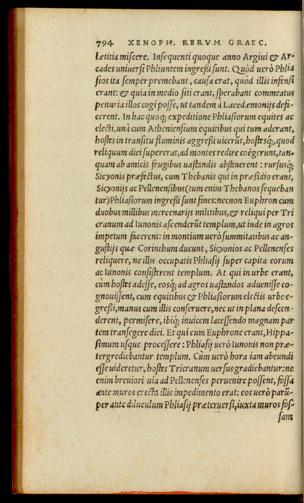 794 XENOPH. RERVM GRAEC.
lætitia miscere. Insequenti quoque anno Argiui & Ar-
cades uniuersi Phliuntem ingressi sunt. Quòd uerò Phlia
sios ita semper premebant, causa erat, quòd illis infensi
erant: & quia in medio siti erant, sperabant commeatus
penuria illos cogi posse, ut tandem à Lacedæmonijs defi-
cerent. In hac quoq; expeditione Phliasiorum equites ac
electi, unà cum Atheniensium equitibus qui tum aderant,
hostes in transitu fluminis aggressi uicerūt, hostesq́;, quod
reliquum diei supererat, ad montes redire coëgerunt, tan-
quam ab amicis frugibus uastandis abstinerent: rursusq́;
Sicyonis præfectus, cum Thebanis qui in præsidio erant,
Sicyonijs ac Pellenensibus (tum enim Thebanos sequeban
tur) Phliasiorum ingressi sunt fines: necnon Euphron cum
duobus millibus mercenarijs militibus, & reliqui per Tri
cranum ad Iunonis ascenderūt templum, ut inde in agros
impetum facerent: in montium uerò summitatibus ac an-
gustijs quæ Corinthum ducunt, Sicyonios ac Pellenenses
reliquere, ne illis occupatis Phliasij super capita eorum
ac Iunonis consisterent templum. At qui in urbe erant,
cùm hostes adesse, eosq́; ad agros uastandos aduenisse co-
gnouissent, cum equitibus & Phliasiorum electis urbe e-
gressi, manus cum illis conseruere, nec ut in plana descen-
derent, permisere, ibiq́; inuicem lacessendo magnam par
tem transegere diei. Et qui cum Euphrone erant, Hippa-
simum usque processere: Phliasij uerò Iunonis non præ-
tergrediebantur templum. Cùm uerò hora iam abeundi
esse uideretur, hostes Tricranum uersus gradiebantur: ne
enim breuiori uia ad Pellenenses peruenire possent, fossa
ante muros erecta illis impedimento erat: eos uerò parū-
per ante diluculum Phliasij præteruersi, iuxta muros fos-
sam